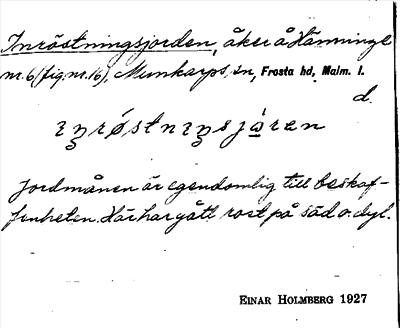 Inröstningsjorden, åker å Hänninge
nr. 6 (fig. nr. 16), Munkarps sn, Frosta hd, Malm. l.
d.
inrøstninsjòren
Jordmånen är egendomlig till beskaf-
fenheten. Här har gått rost på säd o. dyl.
EINAR HOLMBERG 1927